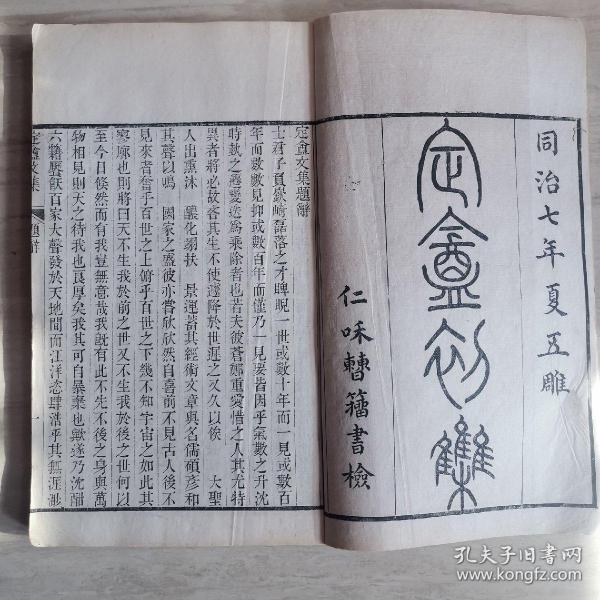 同治七年夏五雕
定盦初集
仁和曹籀書檢
定盦文集題辭
士君子負嶔崎磊落之才睥睨一世或數十年而一見或數百
年而數數見抑或數百年而僅乃一見要皆因乎氣數之升沈
時執之遷變迭爲乘除者也若夫彼蒼鄭重愛惜之人其尤特
異者將必故吝其生不使遽降於世遲之又久以俟 大聖
人出熏沐 醲化翊扶 景運蓄其經術文章與名儒碩彦和
其聲以鳴 國家之盛彼亦嘗欣欣然自喜前不見古人後不
見來者奮乎百世之上俯乎百世之下幾不知宇宙之如此其
寥廓也則將曰天不生我於前之世又不生我於後之世何以
至今日倏然而有我豈無意哉我旣有此不先不後之身與萬
物相見則天之待我也良厚矣我其可自暴棄也歟遂乃沈酣
六籍饜飫百家大聲發於天地間而江洋恣肆浩乎其無涯涘
定盦文集
題辭
一
孔夫子旧书网
www.kongfz.com